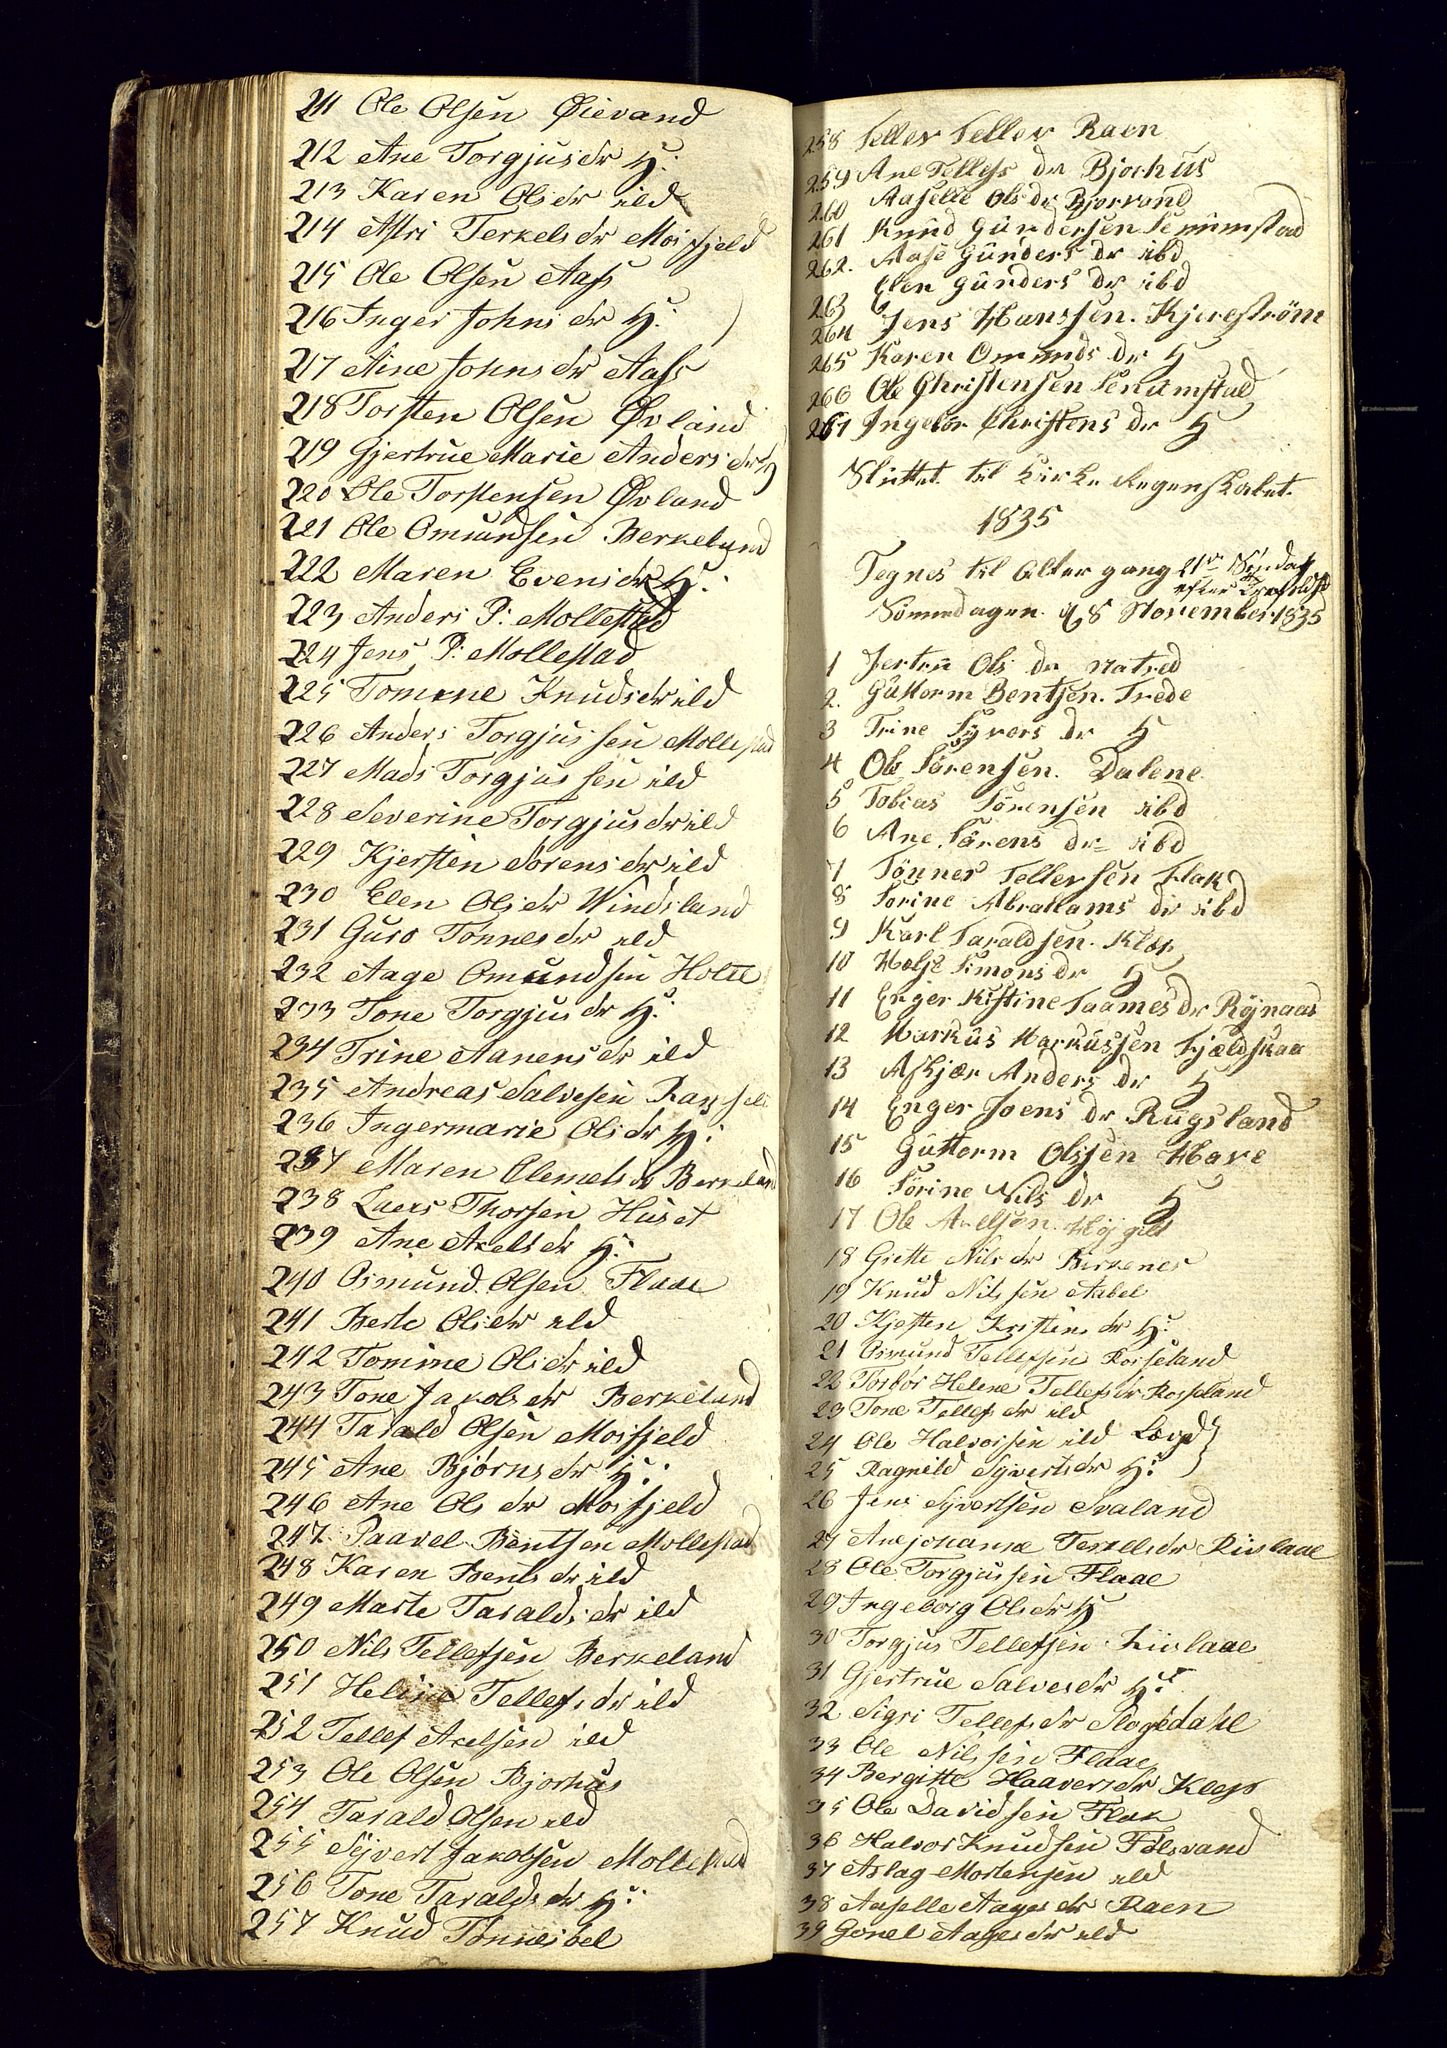 211 Ole Olsen Øievand
212 Ane Torgjusdr H:
213 Karen Olsdr ibd
214 Astri Terkelsdr Moisfjeld
215 Ole Olsen Aass
216 Inger Johnsdr H:
217 Aine Johnsdr Aass
218 Torsten Olsen Øvland
219 Gjertrue Marie Andersdr H
220 Ole Torstensen Øvland
221 Ole Omundsen Berkeland
222 Maren Evensdr H:
223 Anders P: Mollestad
224 Jens P: Mollestad
225 Tomine Knudsdr ibd
226 Anders Torgjussen Mollestad
227 Mads Torgjussen ibd
228 Severine Torgjusdr ibd
229 Kjersten Sørensdr ibd
230 Elen Olsdr Windsland
231 Guro Tønnesdr ibd
232 Aage Omundsen Holte
233 Tone Torgjusdr H:
234 Trine Aanensdr ibd
235 Andreas Salvesen
236 Ingermarie Olsdr H:
237 Maren Clemetsdr Berkeland
238 Laers Thorsen Huset
239 Ane Axelsdr H:
240 Osmund Olsen Flaae
241 Berte Olsdr ibd
242 Tomine Olsdr ibd
243 Tone Jakobsdr Berkeland
244 Tarald Olsen Moisfjeld
245 Ane Bjørnsdr H:
246 Ane Olsdr Moisfjeld
247 Paavel Bentsen Mollestad
248 Karen Bentsdr ibd
249 Marte Taraldsdr ibd
250 Nils Tellefsen Berkeland
251 Heline Tellefsdr ibd
252 Tellef Axelsen ibd
253 Ole Olsen Bjorhus
254 Tarald Olsen ibd
255 Syvert Jakobsen Mollestad
256 Tone Taraldsdr H:
257 Knud Tønnesbel
258 Tellev Tellev Raen
259 Ane Tellefs dr Bjorhus
260 Aaselle Ols dr Bjorvand
261 Knud Gundersen Senumstad
262. Aase Gunders dr ibd
263 Elen Gunders dr ibd
264 Jens Hanssen. Kjereström
265 Karen Omunds dr H
266 Ole Christensen Senumstad
267 Ingebor Christens dr H
Sluttet til Kirke Regenskabet.
1835
Tegnes til Alter gang 21de Søndag
efter Trefoldt
Sønendagen d 8 November 1835
1 Jertru Ols dr Natved
2. Guttorm Bentsen. Trede
3 Trine Syvers dr H
4 Ole Sørensen. Dalene
5 Tobias Sørensen ibd
6 Ane Sørens dr ibd
7 Tønnes Tellevsen Flak
8 Sorine Abrahams dr ibd
9 Karl Taraldsen. Klep
10 Helje Simons dr H
11 Enger Kistine Taames dr Röjnaas
12 Markus Markussen Fjældskaa
13 Asbjør Anders dr H
14 Enger Joens dr Rugsland
15 Guttorm Olssen Have
16 Sörine Nils dr H
17 Ole Axelsen. Høygilt
18 Grette Nilsdr Birkenes
19 Knud Nilssen Aabel
20 Kjesten Kristensdr H:
21 Osmund Tellefsen Rosseland
22 Torbør Helene Tellefsdr Rosseland
23 Tone Tellefsdr ibd
24 Ole Halvorsen ibd Lægd
25 Ragnild Syvertsdr H:
26 Jens Syvertsen Svaland
27 Anejohanne Terkelsdr Rislaae
28 Ole Torgjussen Flaae
29 Ingeborg Olsdr H
30 Torgjus Tellefsen Rislaae
31 Gjertrue Salvesdr H:
32 Sigri Tellefsdr Skogedahl
33 Ole Nilssen Flaae
34 Bergitte Haaversdr Klep
35 Ole Davidsen Flak
36 Halvor Knudsen Følsvand
37 Aslag Mortensen ibd
38 Aaselle Aagesdr Raen
39 Gonel Aagesdr ibd